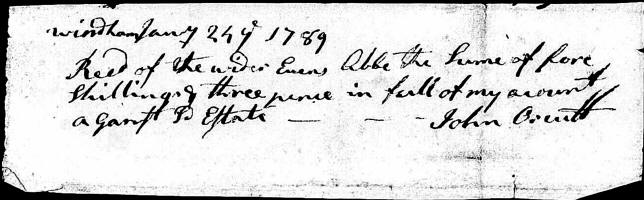 windham Jany 24th 1789
Recd of the wider Eunes Abbe the Sume of fore
Shillings & three pence in full of my acount
aganst Sd Estate — — — John Orcutt